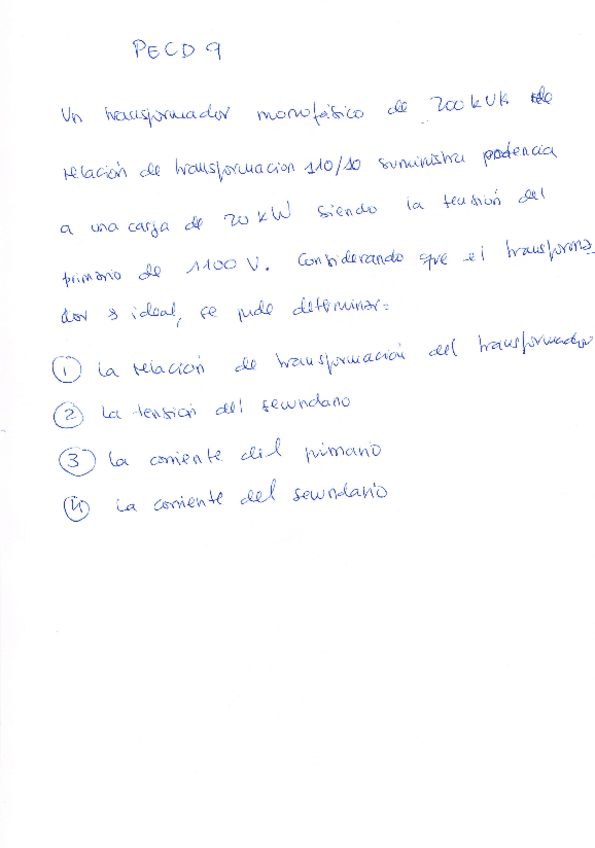 PECD 9
Un transformador monofásico de 200 kVA de
relación de transformacion 110/10 suministra podencia
a una carga de 20 kW siendo la tensión del
primario de 1100 V. Considerando que el transforma
dor es ideal, se pude determinar:
① La relación de transformación del transformador
② La tensión del secundario
③ La corriente del primario
④ La corriente del secundario